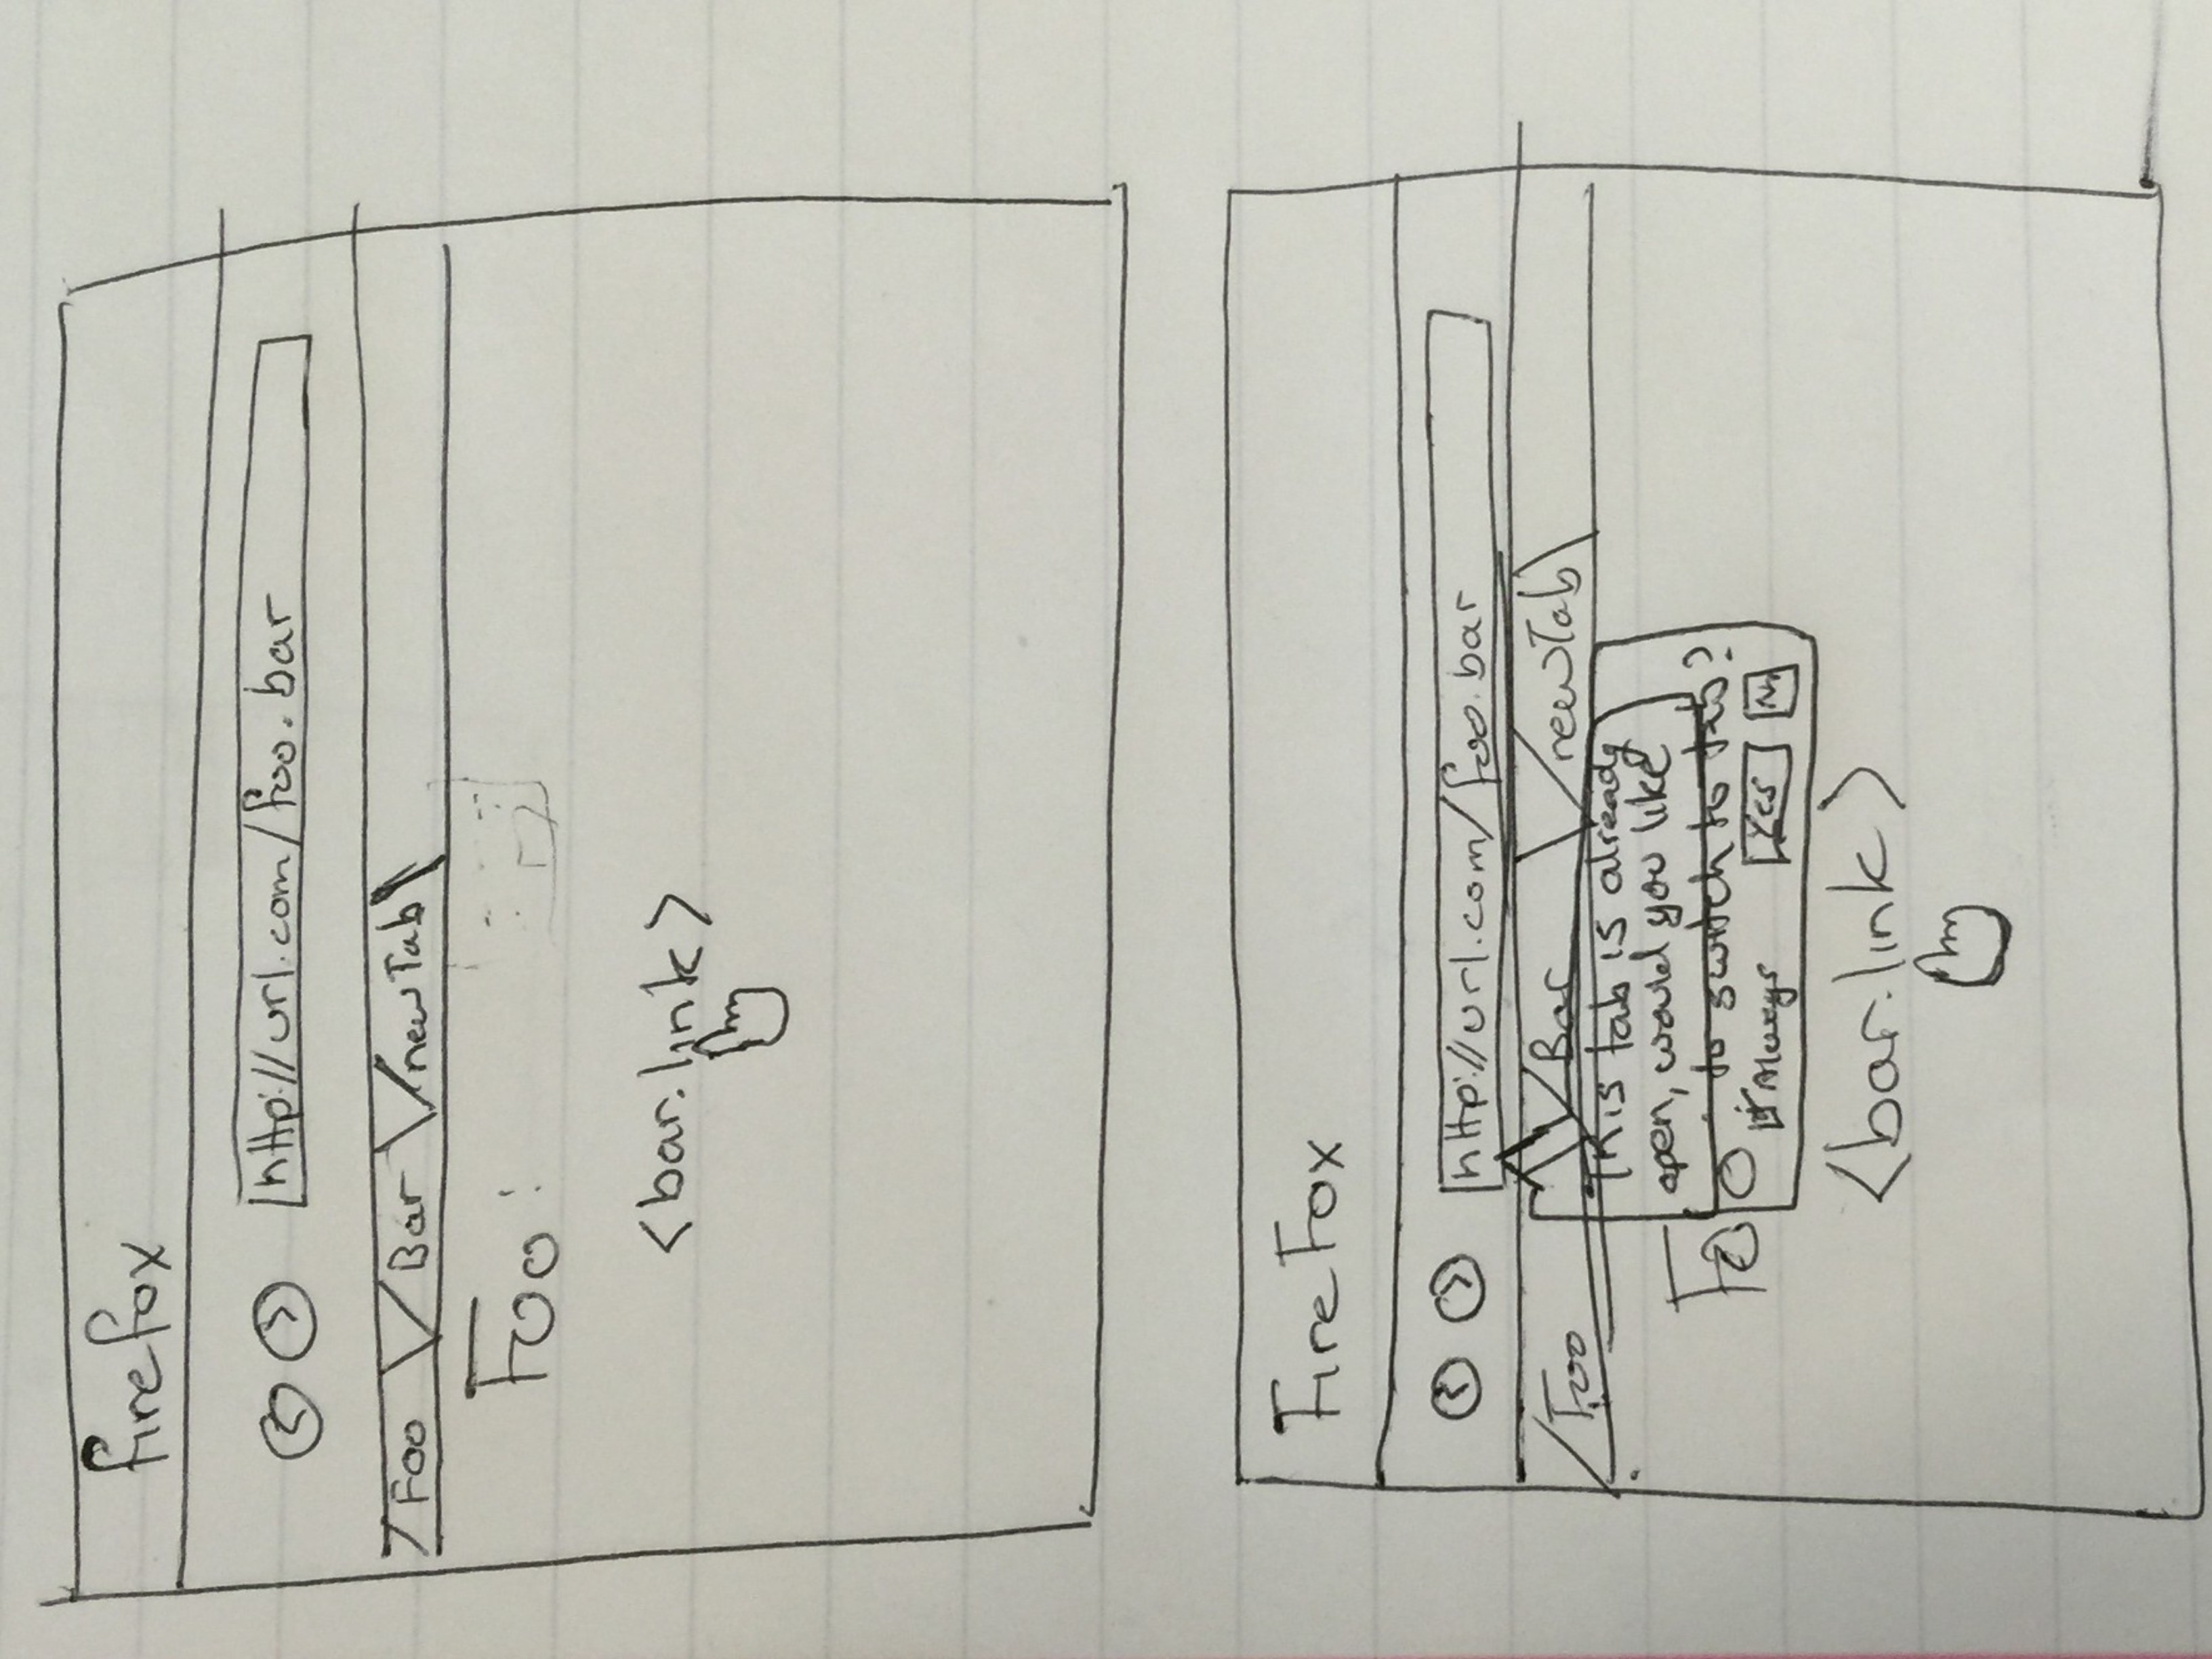 firefox
http://url.com/foo.bar
Foo Bar newTab
Foo:
<bar.link>
FireFox
http://url.com/foo.bar
Foo Bar newTab
This tab is already
open, would you like
to switch to tab?
Foo:
Always Yes No
<bar.link>